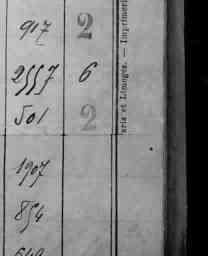 917 2
2557 6
501 2
1907
854
649
aris et Limoges. — Imprimeri